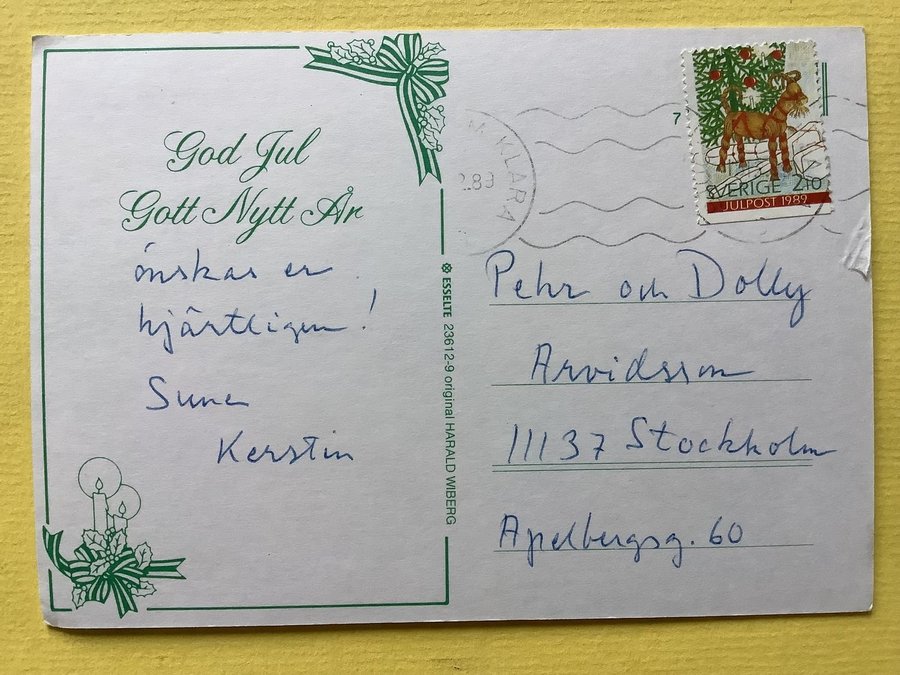 God Jul
Gott Nytt År
önskas er
hjärtligen!
Sune
Kerstin
ESSELTE 23612-9 original HARALD WIBERG
7
M KLARA
2.89
SVERIGE 210
JULPOST 1989
Pehr och Dolly
Arvidsson
11137 Stockholm
Apelbergsg. 60